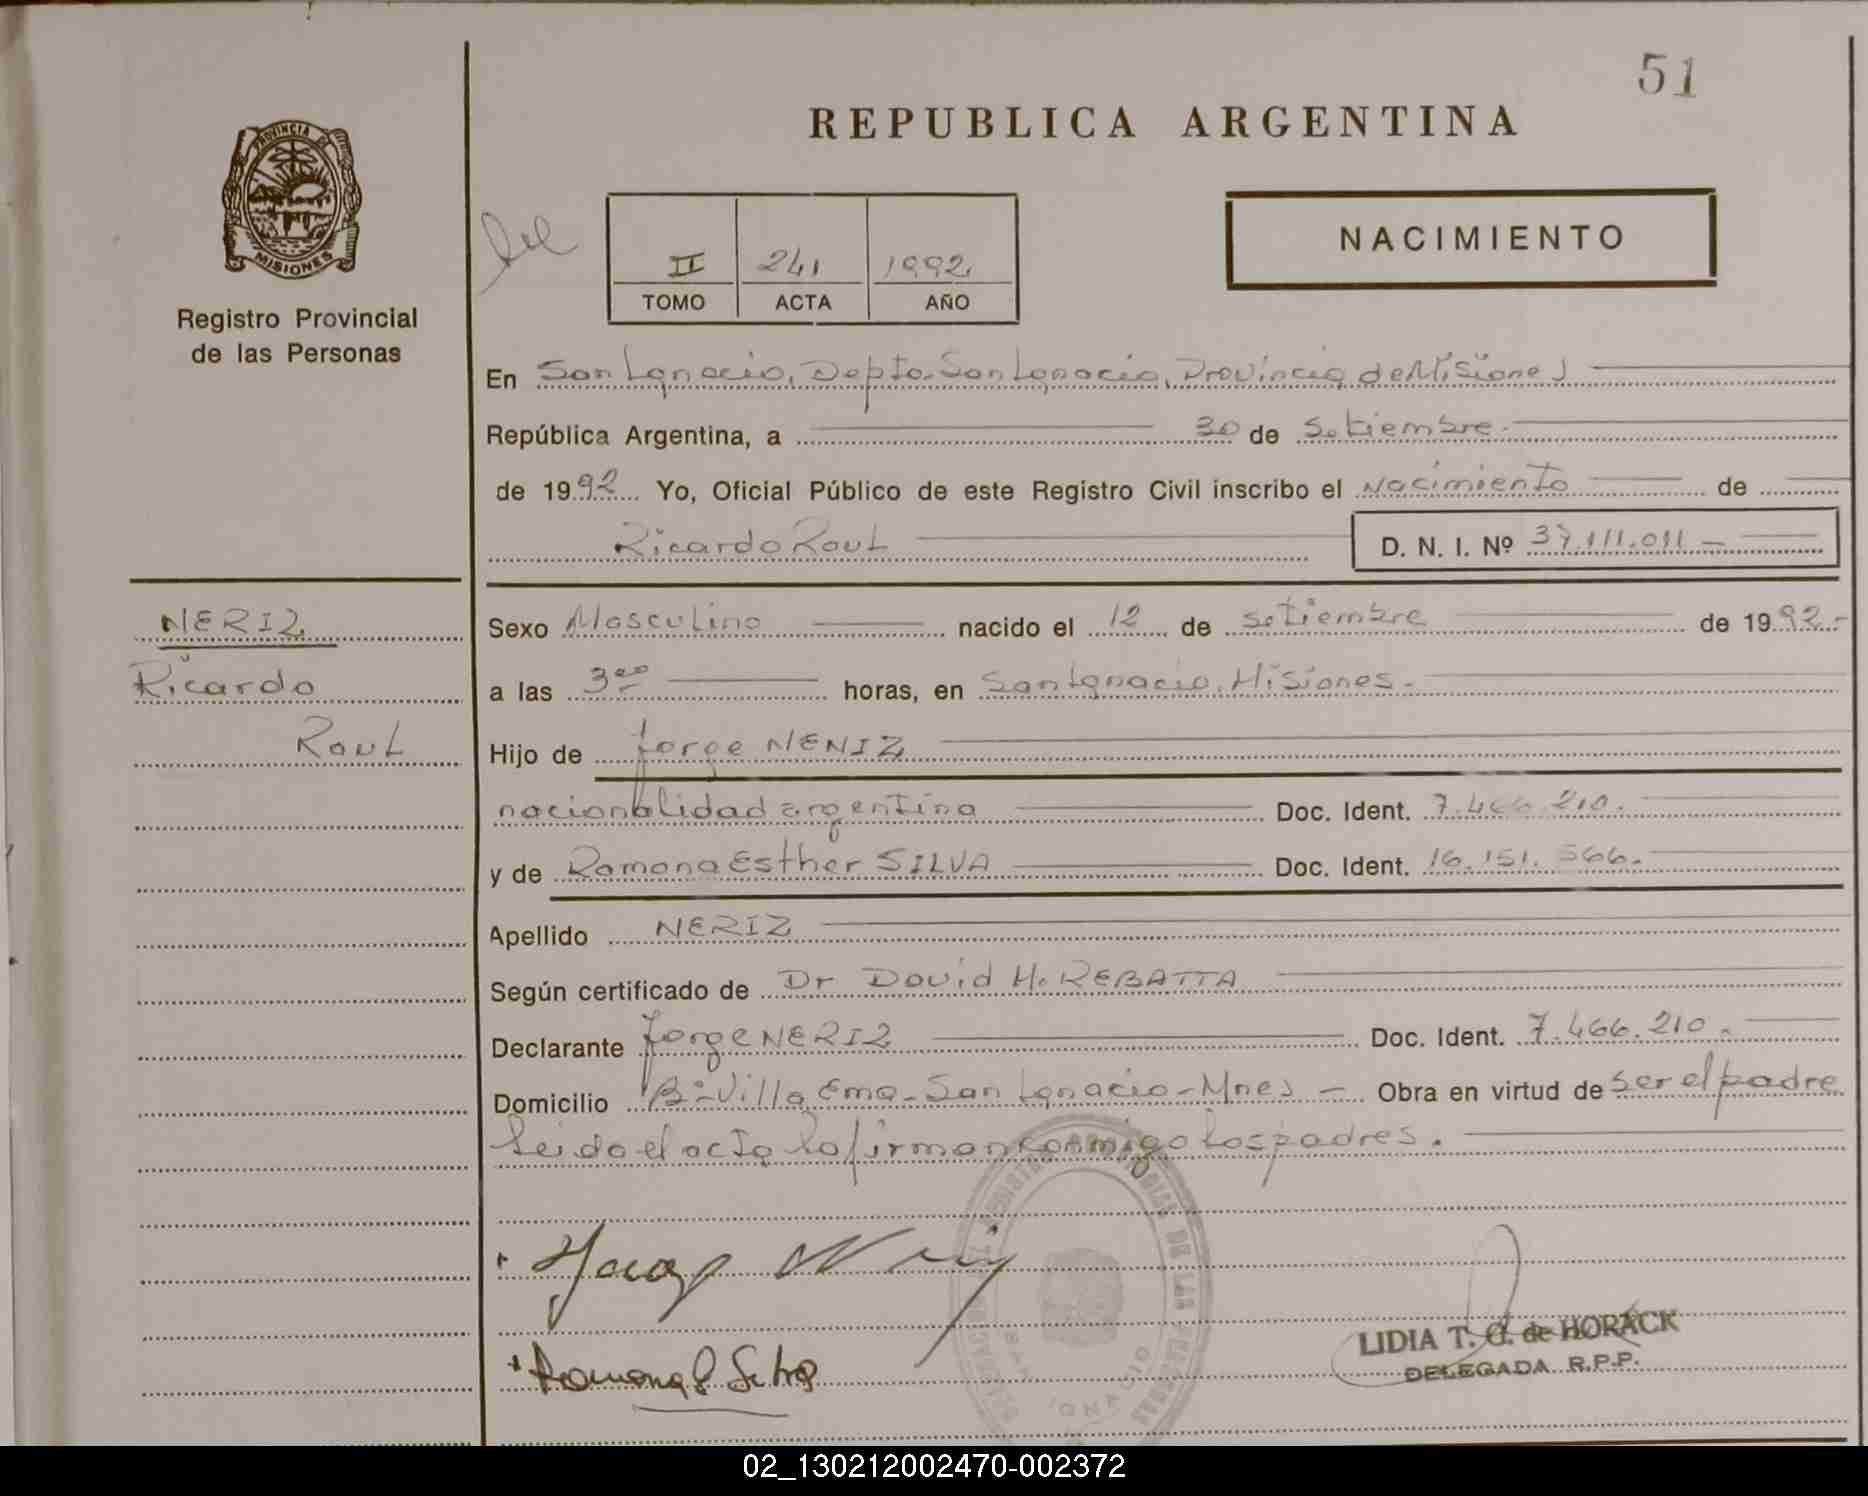 51
REPUBLICA ARGENTINA
PROVINCIA DE
MISIONES
Registro Provincial
de las Personas
II 241 1992
TOMO ACTA AÑO
NACIMIENTO
En San Ignacio, Depto. San Ignacio, Provincia de Misiones
República Argentina, a 30 de Setiembre.
de 1992 Yo, Oficial Público de este Registro Civil inscribo el Nacimiento de
Ricardo Raul D. N. I. Nº 37.111.011 -
NERIZ
Ricardo
Raul
Sexo Masculino nacido el 12 de setiembre de 1992.-
a las 3 horas, en San Ignacio, Misiones.-
Hijo de Jorge NENIZ
nacionalidad argentina Doc. Ident. 7.466.210.
y de Ramona Esther SILVA Doc. Ident. 16.151.566.
Apellido NERIZ
Según certificado de Dr David H. REBATTA
Declarante Jorge NERIZ Doc. Ident. 7.466.210.
Domicilio Bº Villa Ema - San Ignacio - Mnes - Obra en virtud de ser el padre
Leido el acta la firman conmigo los padres.
Ramona E Silva
LIDIA T. G. de HORACK
DELEGADA R.P.P.
02_130212002470-002372